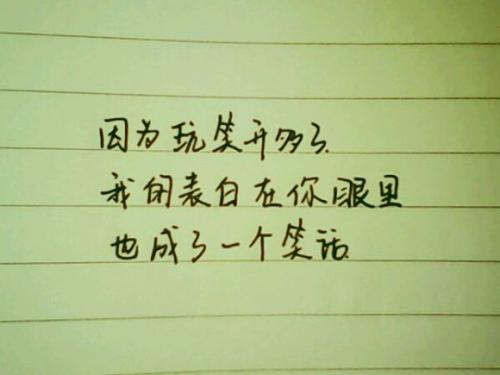 因为玩笑开多了.
我的表白在你眼里
也成了一个笑话.